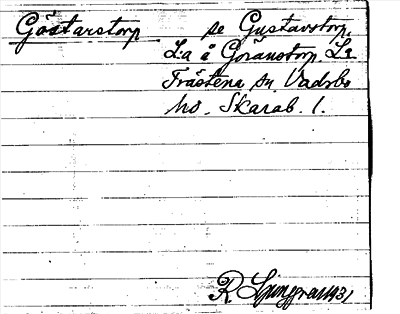 Göstarstorp se Gustavstorp,
L:a å Göranstorp. L:a
Fråstena sn. Vadsbo
hd. Skarab. l.
R. Ljunggren 1931